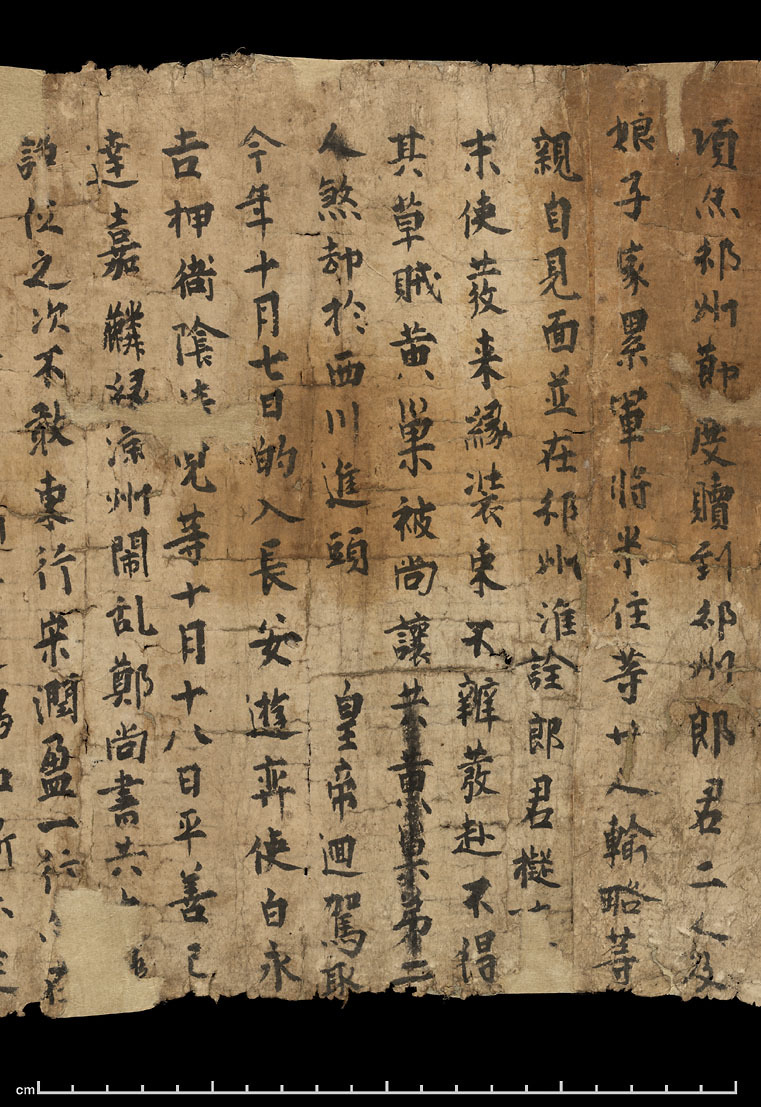 項𠇍邠州節度贖到邠州郎君二人及
娘子家累軍將米住等廿人輸略等
親自見面並在邠州淮詮郎君擬
末使發来緣裝束不辦發赴不得
其草賊黃巢被尚讓共黃巢弟二
人煞却於西川進頭 皇帝迴駕取
今年十月七日的入長安遊弈使白永
吉押衙陰 兒等十月十八日平善已
達嘉麟緣凉州鬧乱鄭尚書共
諍位之次不敢東行宋潤盈一行